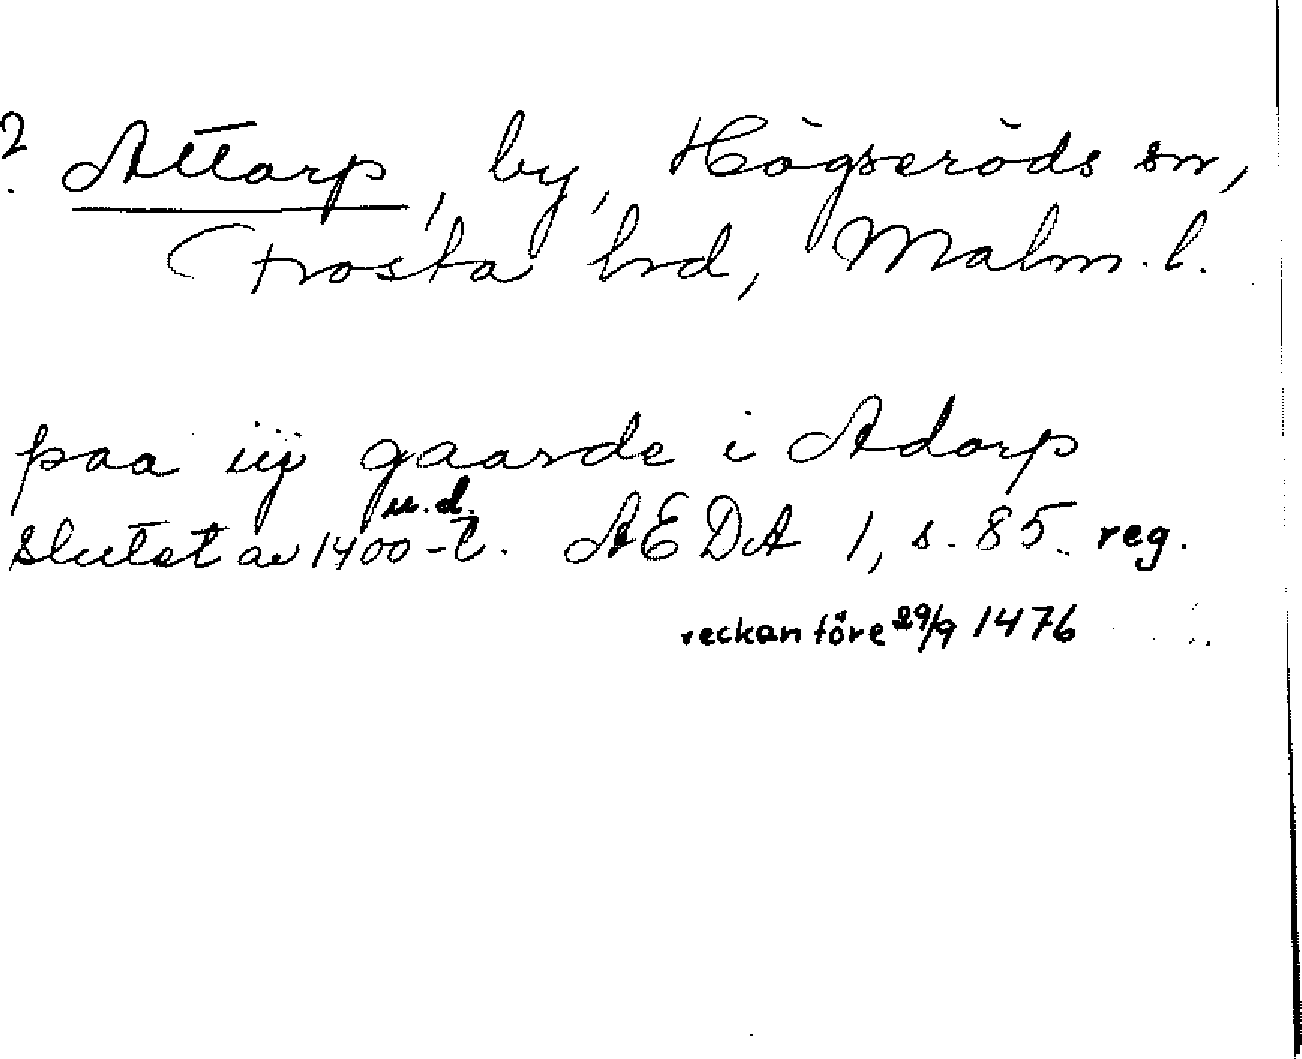 ? Attarp, by, Högseröds sn,
Frosta hrd, Malm. l.
paa iij gaarde i Adarp
u.d.
slutet av 1400-t. AEDA 1, s. 85. reg.
veckan före 29/9 1476